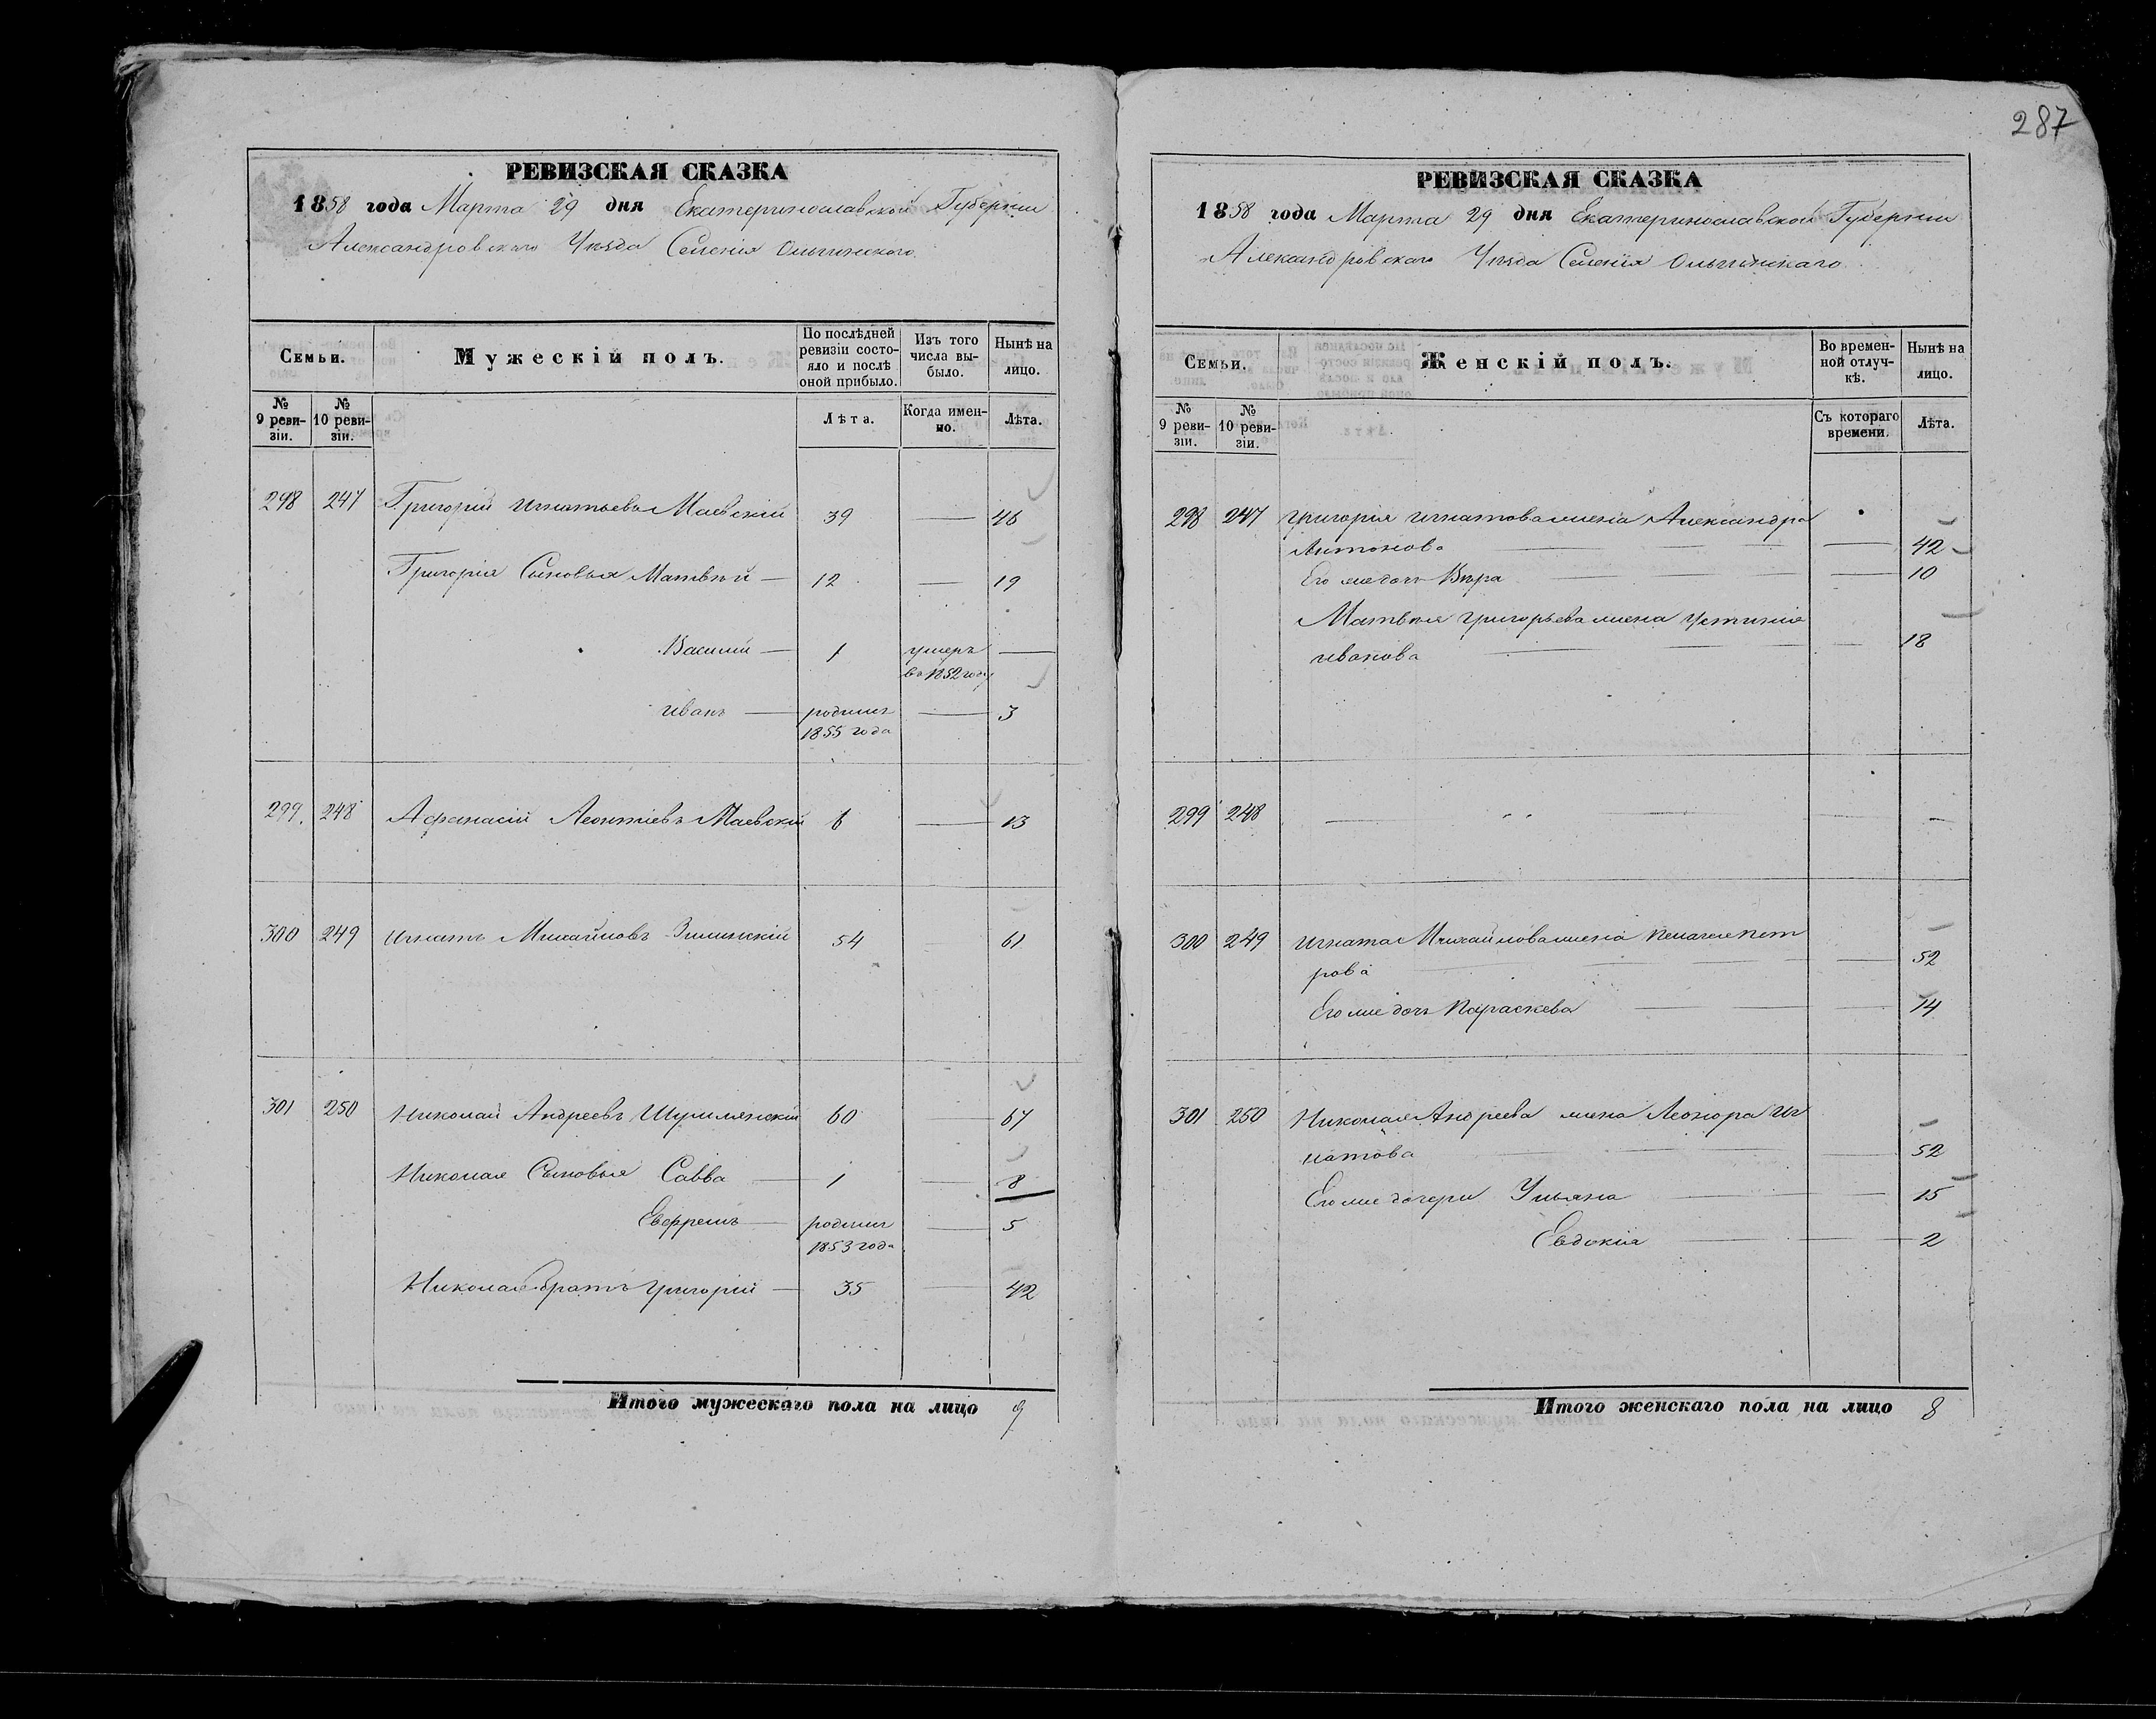 287
РЕВИЗСКАЯ СКАЗКА
1858 года Марта 29 дня Екатеринославской Губернии
Александровскаго Уѣзда Селенія Ольгинскаго
Семьи.
Мужескій полъ.
По послѣдней ревизіи состо-
яло и послѣ оной прибыло.
Изъ того числа вы-
было.
Нынѣ на лицо.
№ 9 реви-
зіи.
№ 10 реви-
зіи.
Лѣта.
Когда имен-
но.
Лѣта.
298 247 Григорій Игнатьевъ Маевскій 39 — 46
Григорія Сыновья Матвѣй — 12 — 19
Василій — 1 умеръ —
въ 1852 году
Иванъ — родился — 3
1855 года
299. 248 Афанасій Леонтіевъ Маевскій 6 — 13
300 249 Игнатъ Михайловъ 54 — 61
301 250 Николай Андреевъ Шумлянскій 60 — 67
Николая Сыновья Савва — 1 — 8
Ефремъ — родился — 5
1853 года
Николая братъ Григорій — 35 — 42
Итого мужескаго пола на лицо 9
РЕВИЗСКАЯ СКАЗКА
1858 года Марта 29 дня Екатеринославской Губернии
Александровскаго Уѣзда Селенія Ольгинскаго
Семьи.
Женскій полъ.
Во времен-
ной отлуч-
кѣ.
Нынѣ на лицо.
№ 9 реви-
зіи.
№ 10 реви-
зіи.
Съ котораго времени.
Лѣта.
298 247 Григорія Игнатова жена Александра
Антонова — — 42
Его же дочь Вѣра — — 10
Матвѣя Григорьева жена Устинія
Иванова — — 18
299 248 — — —
300 249 Игната Михайлова жена Пелагея Пет
рова — — 52
Его же дочь Параскева — — 14
301 250 Николая Андреева жена Леонора Иг
натова — — 52
Его же дочери Ульяна — — 15
Евдокія — — 2
Итого женскаго пола на лицо 8